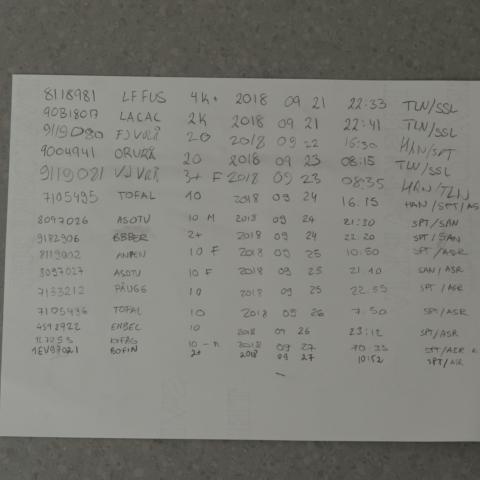 8118981 LFFUS 4K+ 2018 09 21 22:33 TLN/SSL
9031807 LACAC 2K 2018 09 21 22:41 TLN/SSL
9119080 20 2018 09 22 16:30 HAN/SPT
9004941 20 2018 09 23 08:15 TLN/SSL
9119081 3+ F 2018 09 23 08:35 HAN/TLN
7105495 TOFAL 10 2018 09 24 16.15 HAN/SPT/AS
8097026 ASOTU 10 M 2018 09 24 21:30 SPT/SAN
9182906 BBBER 2+ 2018 09 24 22.20 SPT/SAN
8119002 ANPEN 10 F 2018 09 25 10:50 SPT/ASR
8097027 ASOTU 10 F 2018 09 25 21 10 SAN/ASR
7133212 PÄUGG 10 2018 09 25 22.55 SPT/ASR
7105496 TOFAL 10 2018 09 26 7.50 SPT/ASR
4592922 ENBEL 10 2018 09 26 23:12 SPT/ASR
10 2018 09 27 SPT/ASR
BOFIN 2+ 2018 09 27 10:52 SPT/